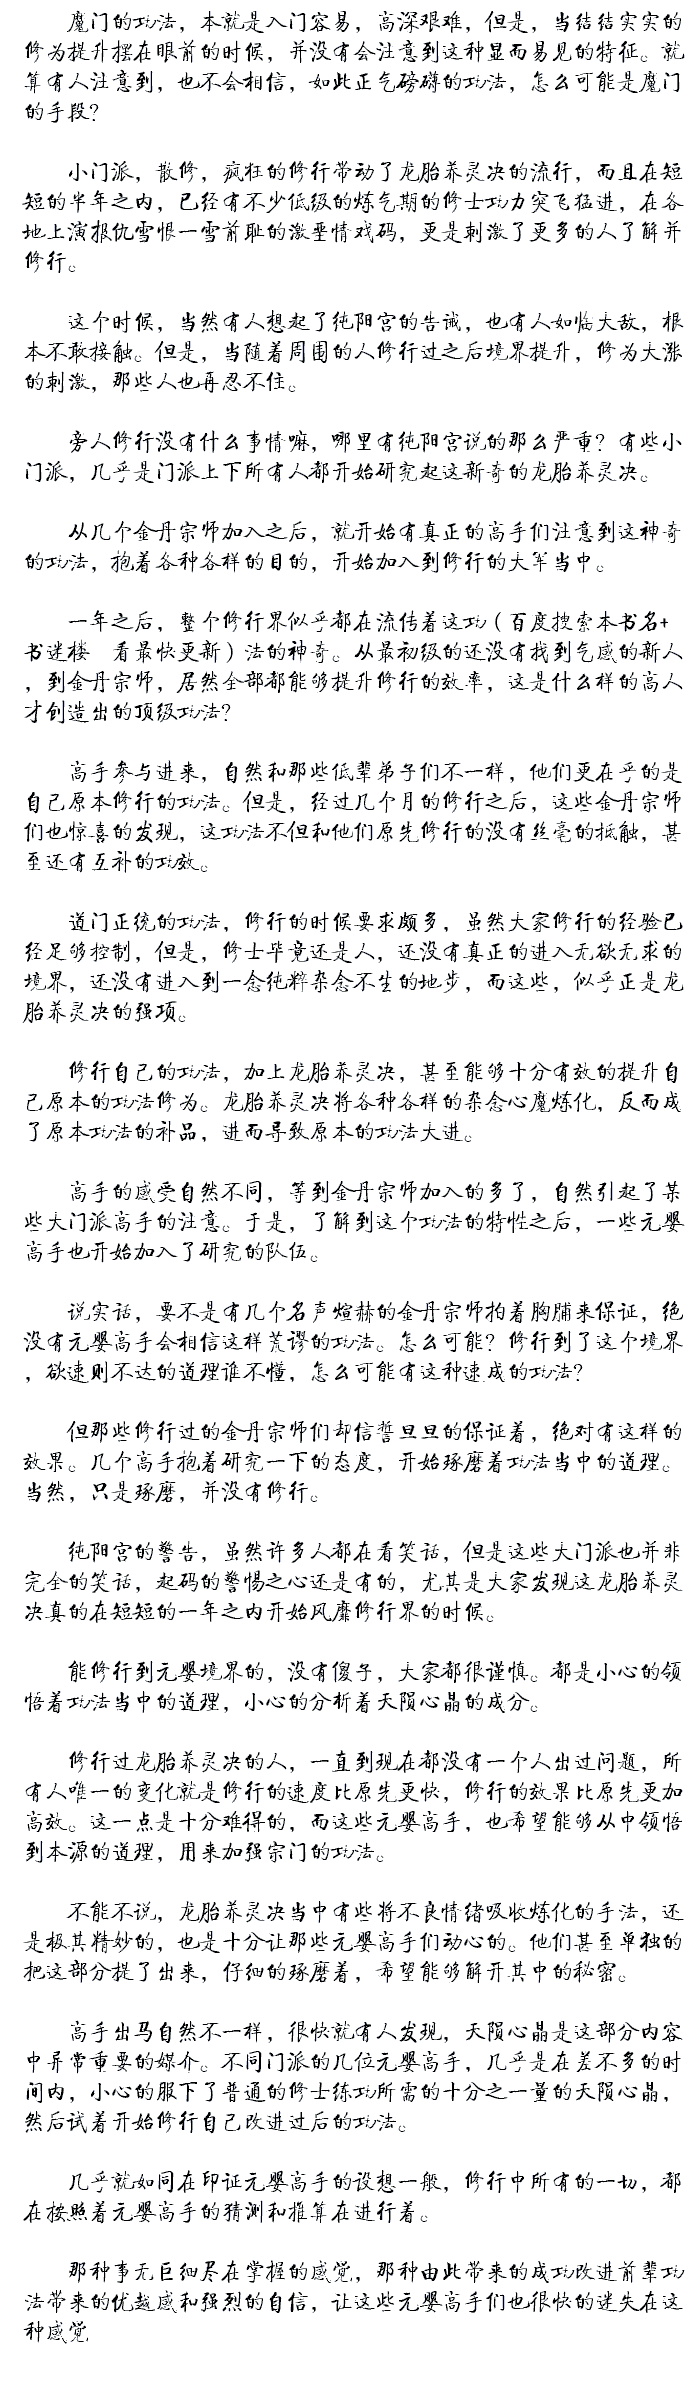 魔门的功法，本就是入门容易，高深艰难，但是，当结结实实的
修为提升摆在眼前的时候，并没有会注意到这种显而易见的特征。就
算有人注意到，也不会相信，如此正气磅礴的功法，怎么可能是魔门
的手段？
小门派，散修，疯狂的修行带动了龙胎养灵决的流行，而且在短
短的半年之内，已经有不少低级的炼气期的修士功力突飞猛进，在各
地上演报仇雪恨一雪前耻的激壅情戏码，更是刺激了更多的人了解并
修行。
这个时候，当然有人想起了纯阳宫的告诫，也有人如临大敌，根
本不敢接触。但是，当随着周围的人修行过之后境界提升，修为大涨
的刺激，那些人也再忍不住。
旁人修行没有什么事情嘛，哪里有纯阳宫说的那么严重？有些小
门派，几乎是门派上下所有人都开始研究起这新奇的龙胎养灵决。
从几个金丹宗师加入之后，就开始有真正的高手们注意到这神奇
的功法，抱着各种各样的目的，开始加入到修行的大军当中。
一年之后，整个修行界似乎都在流传着这功（百度搜索本书名+
书迷楼　看最快更新）法的神奇。从最初级的还没有找到气感的新人
，到金丹宗师，居然全部都能够提升修行的效率，这是什么样的高人
才创造出的顶级功法？
高手参与进来，自然和那些低辈弟子们不一样，他们更在乎的是
自己原本修行的功法。但是，经过几个月的修行之后，这些金丹宗师
们也惊喜的发现，这功法不但和他们原先修行的没有丝毫的抵触，甚
至还有互补的功效。
道门正统的功法，修行的时候要求颇多，虽然大家修行的经验已
经足够控制，但是，修士毕竟还是人，还没有真正的进入无欲无求的
境界，还没有进入到一念纯粹杂念不生的地步，而这些，似乎正是龙
胎养灵决的强项。
修行自己的功法，加上龙胎养灵决，甚至能够十分有效的提升自
己原本的功法修为。龙胎养灵决将各种各样的杂念心魔炼化，反而成
了原本功法的补品，进而导致原本的功法大进。
高手的感受自然不同，等到金丹宗师加入的多了，自然引起了某
些大门派高手的注意。于是，了解到这个功法的特性之后，一些元婴
高手也开始加入了研究的队伍。
说实话，要不是有几个名声煊赫的金丹宗师拍着胸脯来保证，绝
没有元婴高手会相信这样荒谬的功法。怎么可能？修行到了这个境界
，欲速则不达的道理谁不懂，怎么可能有这种速成的功法？
但那些修行过的金丹宗师们却信誓旦旦的保证着，绝对有这样的
效果。几个高手抱着研究一下的态度，开始琢磨着功法当中的道理。
当然，只是琢磨，并没有修行。
纯阳宫的警告，虽然许多人都在看笑话，但是这些大门派也并非
完全的笑话，起码的警惕之心还是有的，尤其是大家发现这龙胎养灵
决真的在短短的一年之内开始风靡修行界的时候。
能修行到元婴境界的，没有傻子，大家都很谨慎。都是小心的领
悟着功法当中的道理，小心的分析着天陨心晶的成分。
修行过龙胎养灵决的人，一直到现在都没有一个人出过问题，所
有人唯一的变化就是修行的速度比原先更快，修行的效果比原先更加
高效。这一点是十分难得的，而这些元婴高手，也希望能够从中领悟
到本源的道理，用来加强宗门的功法。
不能不说，龙胎养灵决当中有些将不良情绪吸收炼化的手法，还
是极其精妙的，也是十分让那些元婴高手们动心的。他们甚至单独的
把这部分提了出来，仔细的琢磨着，希望能够解开其中的秘密。
高手出马自然不一样，很快就有人发现，天陨心晶是这部分内容
中异常重要的媒介。不同门派的几位元婴高手，几乎是在差不多的时
间内，小心的服下了普通的修士练功所需的十分之一量的天陨心晶，
然后试着开始修行自己改进过后的功法。
几乎就如同在印证元婴高手的设想一般，修行中所有的一切，都
在按照着元婴高手的猜测和推算在进行着。
那种事无巨细尽在掌握的感觉，那种由此带来的成功改进前辈功
法带来的优越感和强烈的自信，让这些元婴高手们也很快的迷失在这
种感觉